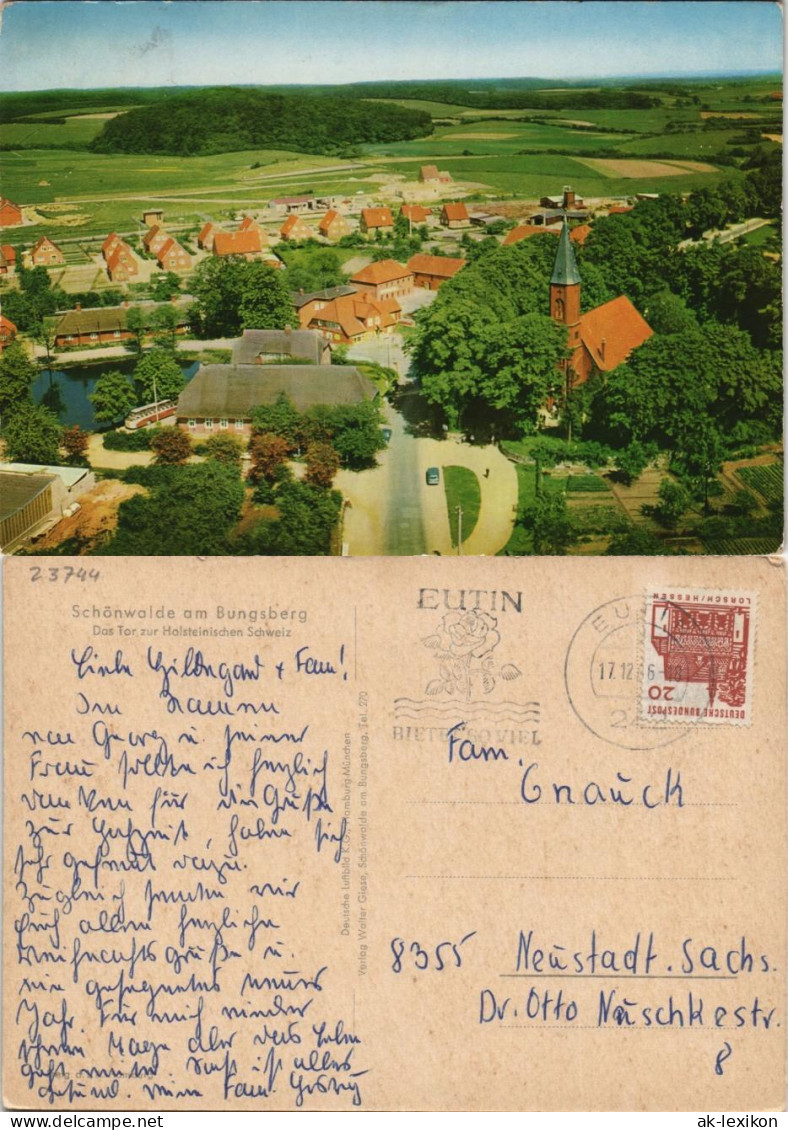 23744
Schönwalde am Bungsberg
Das Tor zur Holsteinischen Schweiz
Liebe Hildegard + Fam!
Im Namen
von Georg u. seiner
Frau sollte ich herzlich
danken für die Grüße
zur Hochzeit, haben sich
sehr gefreut dazu.
Zugleich senden wir
Euch allen herzliche
Weihnachtsgrüße u.
ein gesegnetes neues
Jahr. Für mich wieder
schwere Tage aber das Leben
geht weiter. Sonst ist alles
gesund. Eure Fam.
Deutsche Luftbild K.G. Hamburg-München
Verlag Walter Giese, Schönwalde am Bungsberg, Tel. 270
EUTIN
BIETET SO VIEL
17.12.
DEUTSCHE BUNDESPOST
LORSCH/HESSEN
20
Fam.
Gnauck
8355 Neustadt. Sachs.
Dr. Otto Nuschkestr.
8
ak-lexikon
www.delcampe.net